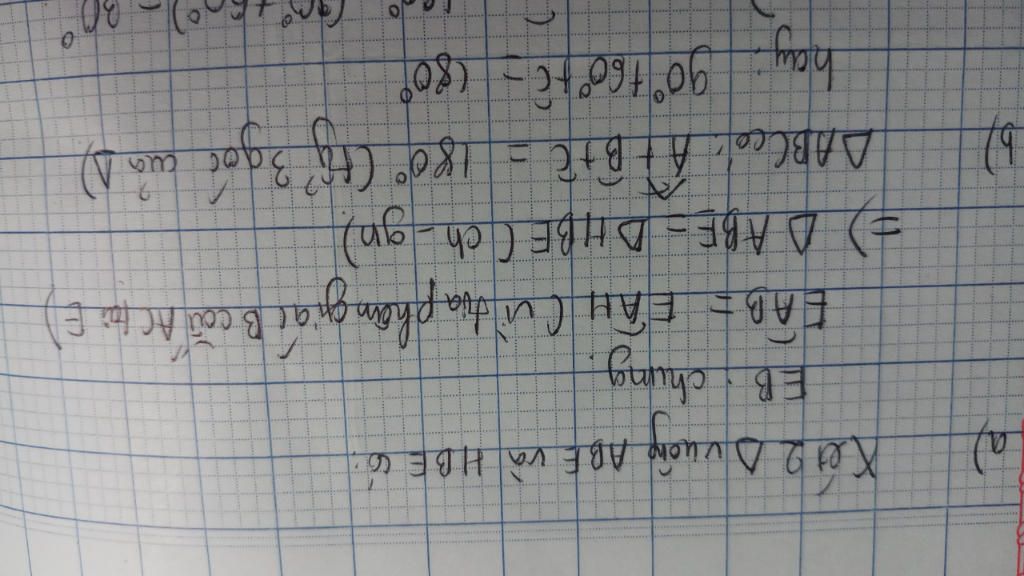 a) Xét 2 Δ vuông ABE và HBE có:
EB: chung.
EAB = EAH (vì tia phân giác B cắt AC tại E)
=) Δ ABE = Δ HBE (ch - gn)
b) Δ ABC có: Â + B̂ + Ĉ = 180° (tg 3 góc của Δ)
hay: 90° + 60° + Ĉ = 180°
(90° + 60°) = 30°